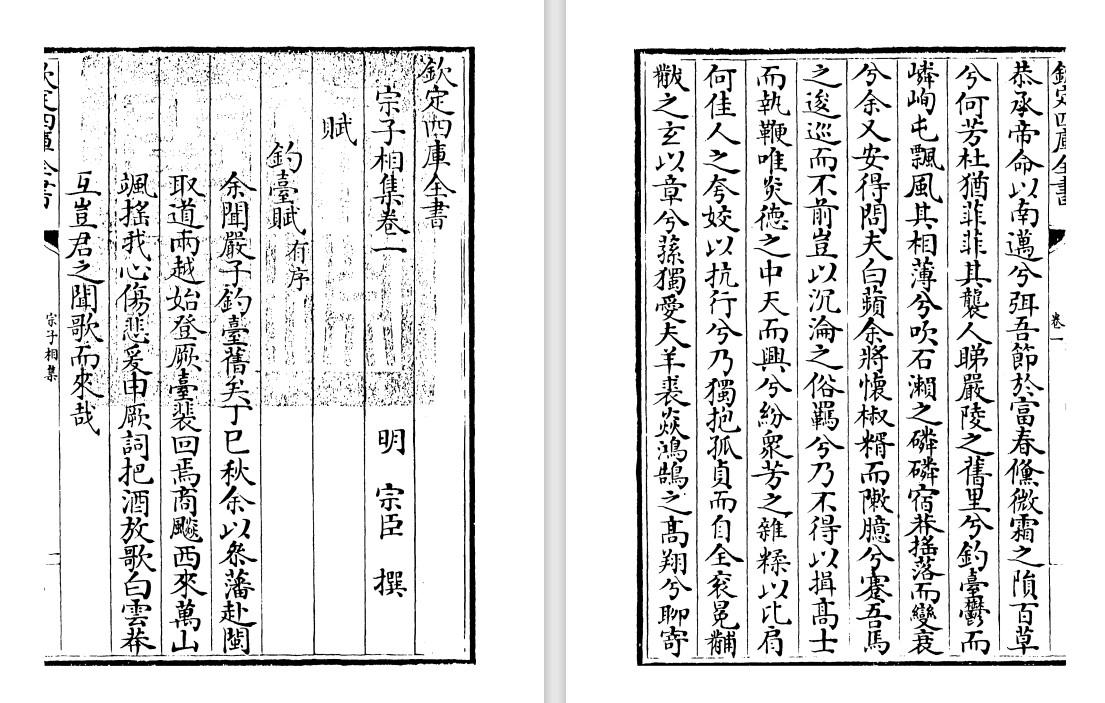 欽定四庫全書
宗子相集卷一　明　宗臣　撰
賦
釣臺賦有序
余聞嚴子釣臺舊矣丁巳秋余以叅藩赴閩
取道兩越始登厥臺裴回焉商飈西來萬山
颯搖我心傷悲爰申厥詞把酒放歌白雲莽
互豈君之聞歌而來哉
欽定四庫全書　宗子相集
欽定四庫全書　卷一
恭承帝命以南邁兮弭吾節於富春儵微霜之隕百草
兮何芳杜猶菲菲其襲人睇嚴陵之舊里兮釣臺鬱而
嶙峋屯飄風其相薄兮吹石瀨之磷磷宿莽搖落而變衰
兮余又安得問夫白蘋余將懷椒糈而敶臆兮蹇吾馬
之逡巡而不前豈以沉淪之俗羈兮乃不得以揖髙士
而執鞭唯炎德之中天而興兮紛衆芳之雜糅以比肩
何佳人之夸姣以抗行兮乃獨抱孤貞而自全袞冕黼
黻之玄以章兮蓀獨愛夫羊裘焱鴻鵠之髙翔兮聊寄